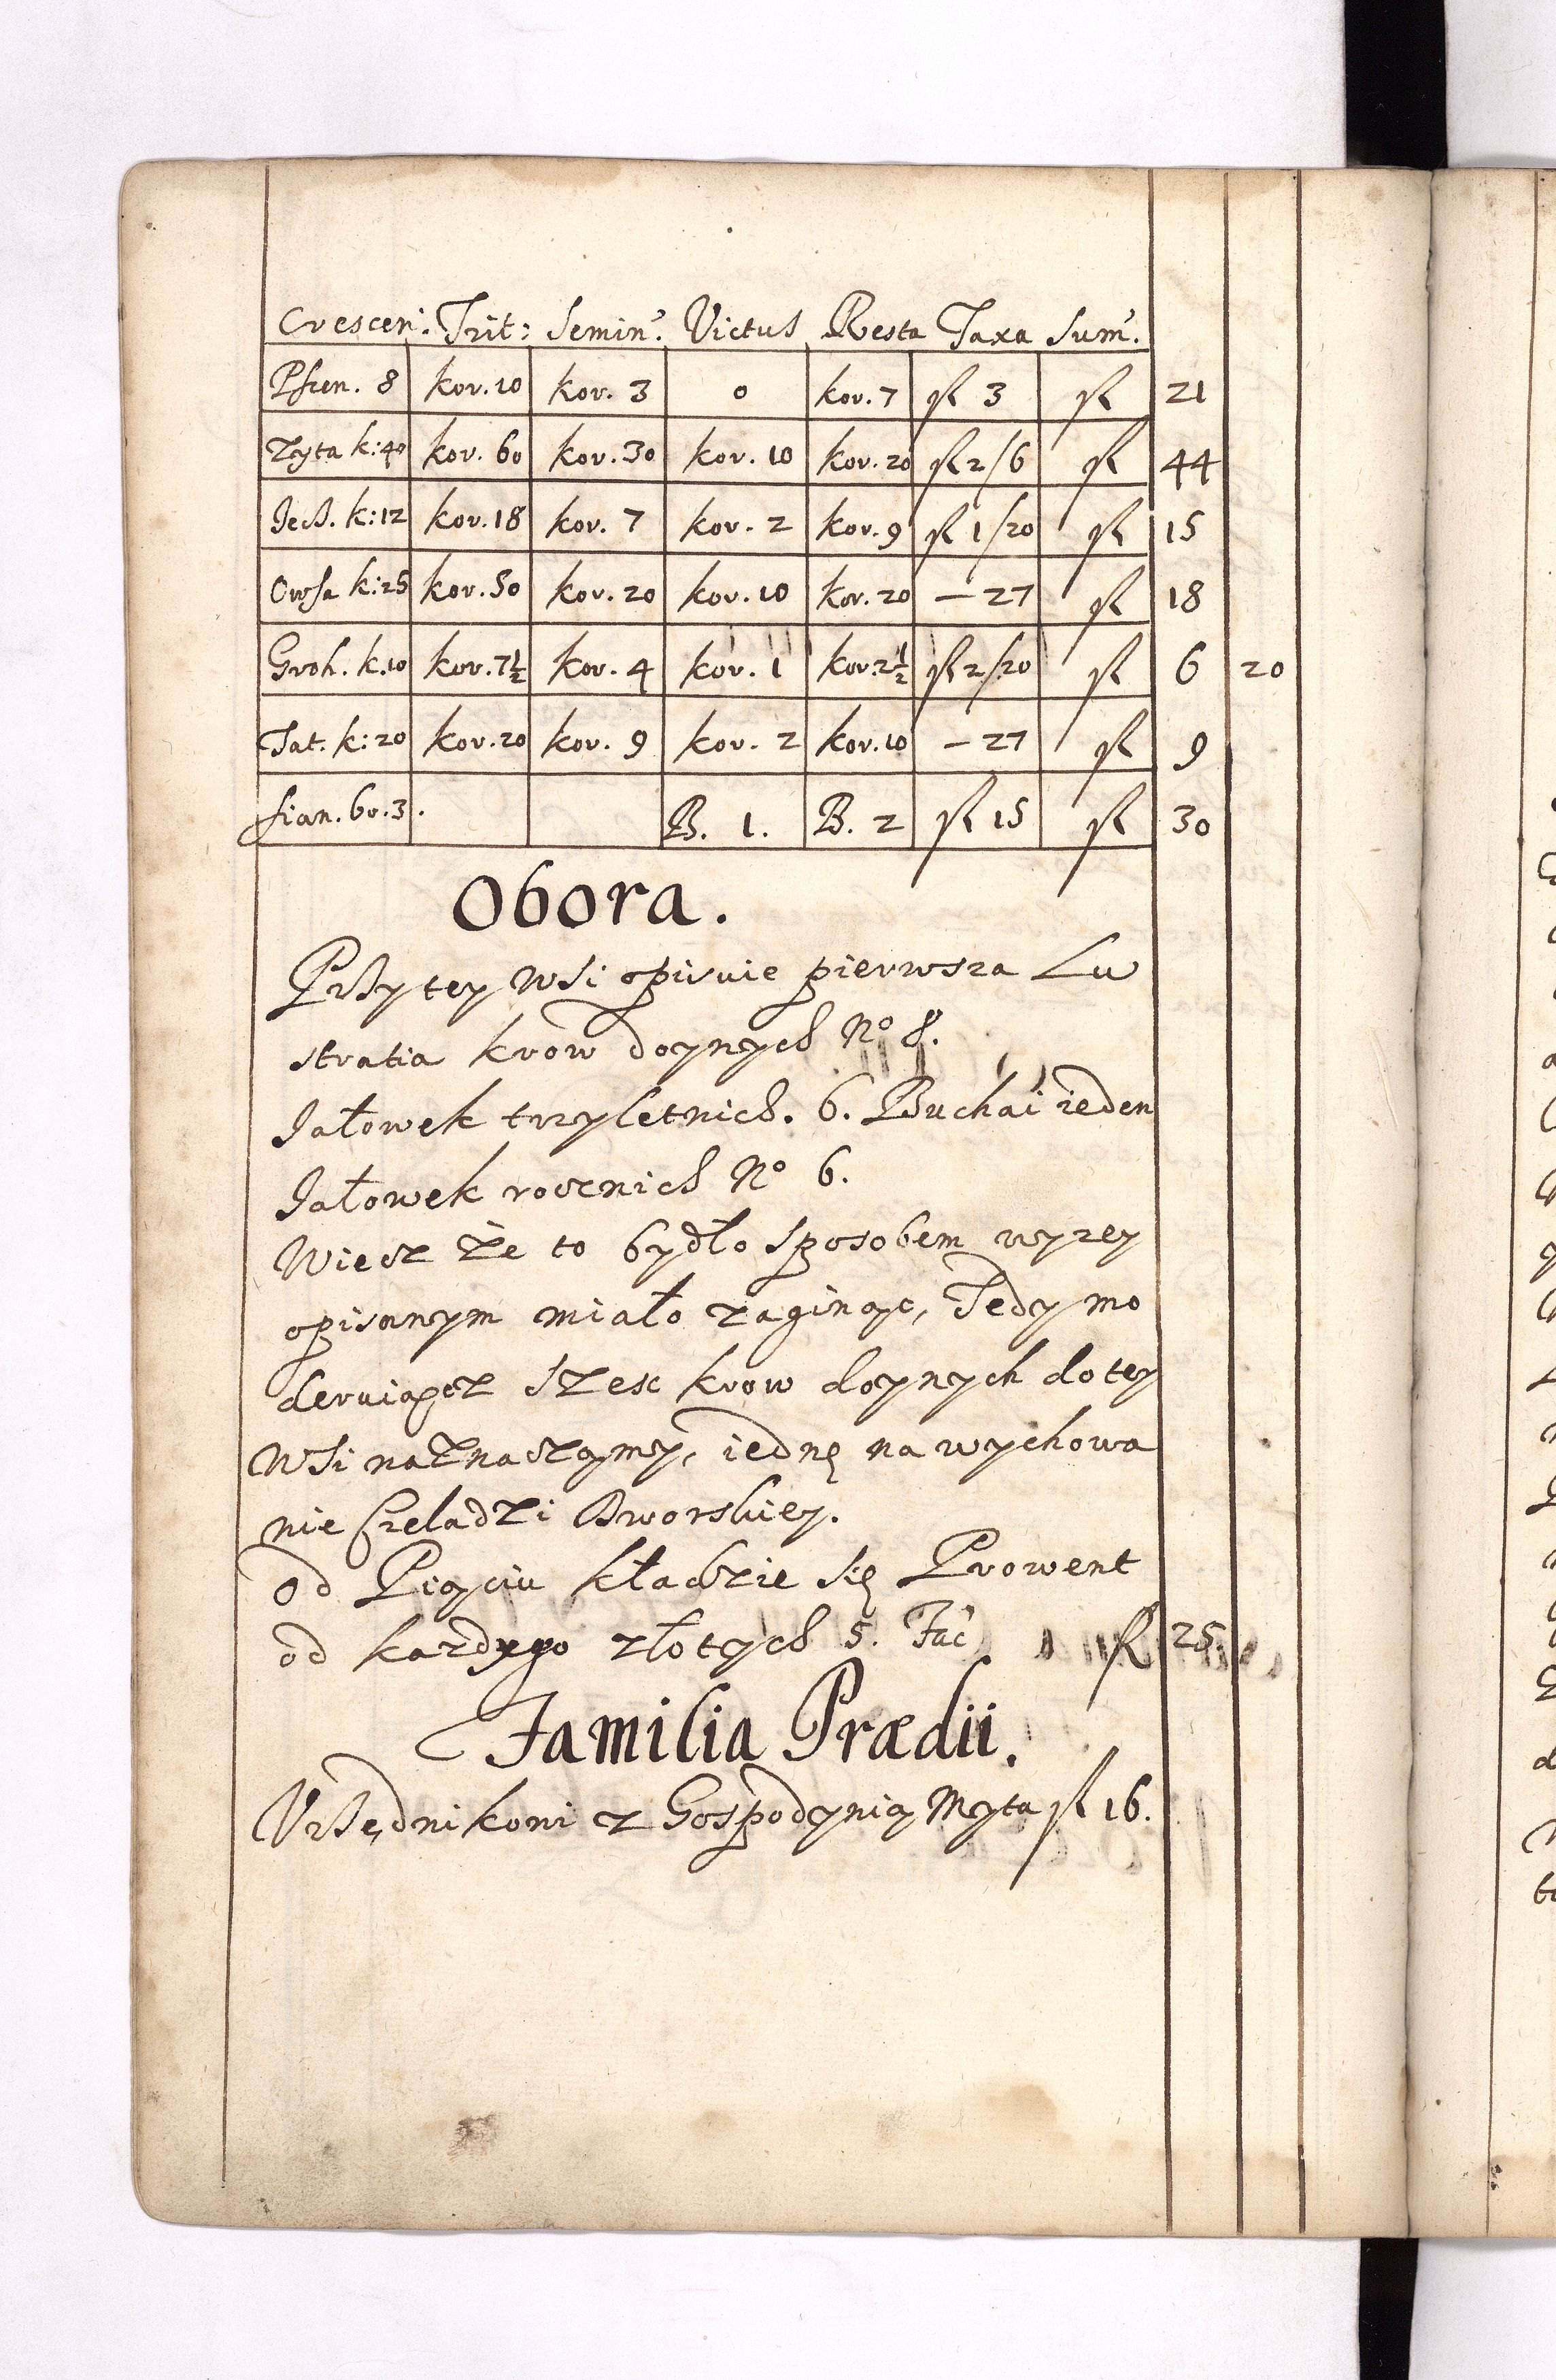 Crescen: Trit: Semin: Victus Resta Taxa Sum:
Pszen. 8 kor. 10 kor. 3 0 kor. 7 fl 3 fl 21
Zyta k: 40 kor. 60 kor. 30 kor. 10 kor. 20 fl 2/6 fl 44
Jecz. k: 12 kor. 18 kor. 7 kor. 2 kor. 9 fl 1/20 fl 15
Owsa k: 25 kor. 50 kor. 20 kor. 10 kor. 20 — 27 fl 18
Groh. k. 10 kor. 7½ kor. 4 kor. 1 kor. 2½ fl 2/20 fl 6 20
Tat. k: 20 kor. 20 kor. 9 kor. 2 kor. 10 — 27 fl 9
sian. bo. 3. B. 1. B. 2 fl 15 fl 30
Obora.
Przy tey wsi opisuie pierwsza Lu
stratia krow doynych No 8.
Jałowek trzyletnich. 6. Buchai ieden
Jałowek rocznich No 6.
Wiecz że to bydło sposobem wyzey
opisanym miało zaginąc, Tedy mo
deruiącz szesc krow doynych do tey
wsi naznaczamy, iednę na wychowa
nie Czeladzi Dworskiey.
od Piąciu kładzie się Prowent
od kazdego złotych 5. Fac fl 25
Familia Prædii.
Vrzędnikowi z Gospodynią Myta fl 16.